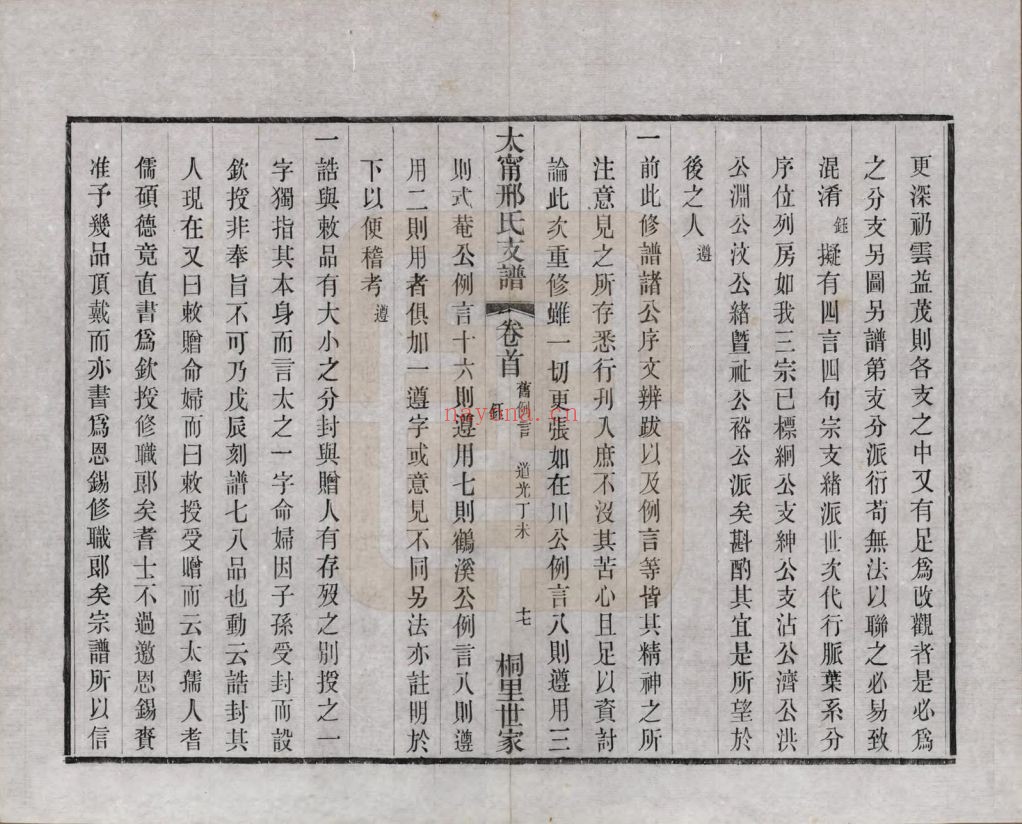 更深礽雲益茂則各支之中又有足為改觀者是必為
之分支另圖另譜第支分派衍苟無法以聯之必易致
混淆鈺擬有四言四句宗支緒派世次代行脈葉系分
序位列房如我三宗已標絅公支紳公支沾公濟公洪
公淵公汶公緒暨祉公裕公派矣斟酌其宜是所望於
後之人遵
一前此修譜諸公序文辨跋以及例言等皆其精神之所
注意見之所存悉行刋入庶不沒其苦心且足以資討
論此次重修雖一切更張如在川公例言八則遵用三
太甯邢氏支譜 卷首 舊例言 道光丁未 鈺 十七 桐里世家
則式菴公例言十六則遵用七則鶴溪公例言八則遵
用二則用者俱加一遵字或意見不同另法亦註明於
下以便稽考遵
一誥與敕品有大小之分封與贈人有存歿之別授之一
字獨指其本身而言太之一字命婦因子孫受封而設
欽授非奉旨不可乃戊辰刻譜七八品也動云誥封其
人現在又曰敕贈命婦而曰敕授受贈而云太孺人耆
儒碩德竟直書為欽授修職郎矣耆士不過邀恩錫賚
准予幾品頂戴而亦書為恩錫修職郎矣宗譜所以信
nayona.cn